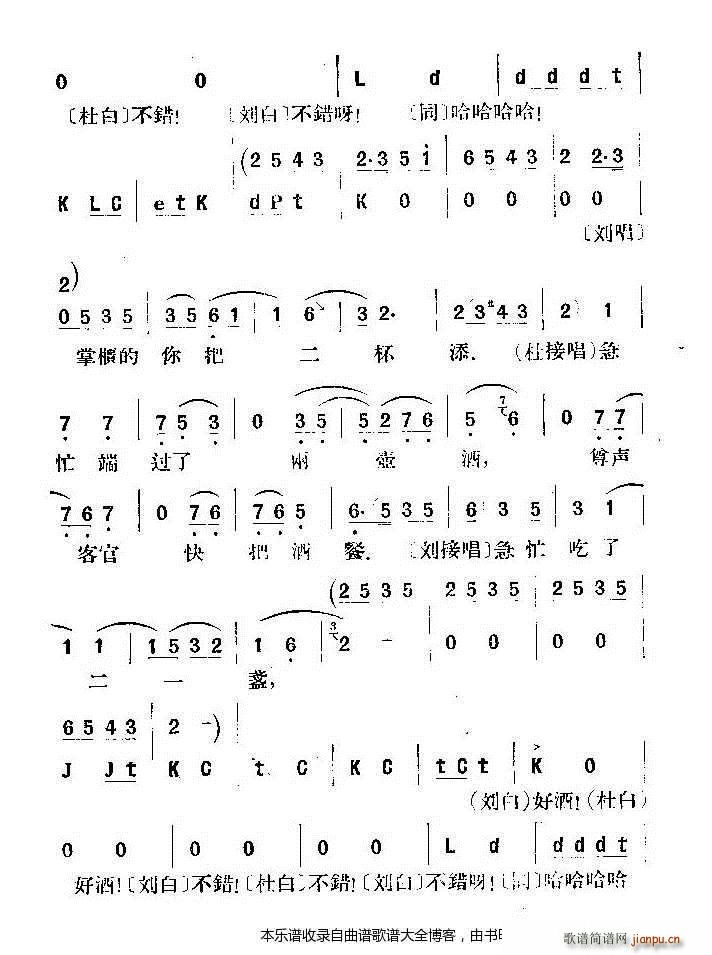 0 0 | L d | d d d d t |
〔杜白〕不錯! 〔刘白〕不錯呀! 〔同〕哈哈哈哈!
(2 5 4 3 | 2·3 5 i | 6 5 4 3 | 2 2·3 |
K L C | e t K | d P t | K 0 | 0 0 | 0 0 |
〔刘唱〕
2)
0 5 3 5 | 3 5 6 1 | 1 6 | 3 2· | 2 3 #4 3 | 2 1 |
掌櫃的你把二杯添. (杜接唱)急
7 7 | 7 5 3 | 0 3 5 | 5 2 7 6 | 5 6 | 0 7 7 |
忙端过了兩壺酒, 尊声
7 6 7 | 0 7 6 | 7 6 5 | 6· 5 3 5 | 6 3 5 | 3 1 |
客官快把酒餐. 〔刘接唱〕急忙吃了
(2 5 3 5 | 2 5 3 5 | 2 5 3 5 |
1 1 | 1 5 3 2 | 1 6 | 2 - | 0 0 | 0 0 |
二一盞,
6 5 4 3 | 2 -)
J J t | K C | t C | K C | t C t | K 0 |
(刘白)好酒! (杜白)
0 0 | 0 0 | 0 0 | 0 0 | L d | d d d d t |
好酒! 〔刘白〕不錯! 〔杜白〕不錯! 〔刘白〕不錯呀! 〔同〕哈哈哈哈
本乐谱收录自曲谱歌谱大全博客，由书
歌谱简谱网
jianpu.cn